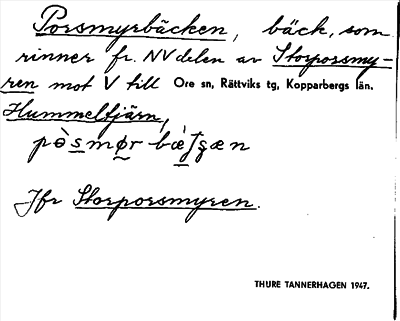 Porsmyrbäcken, bäck, som
rinner fr. NV delen av Storporsmy-
ren mot V till Ore sn, Rättviks tg, Kopparbergs län.
Hummeltjärn,
Jfr Storporsmyren.
THURE TANNERHAGEN 1947.